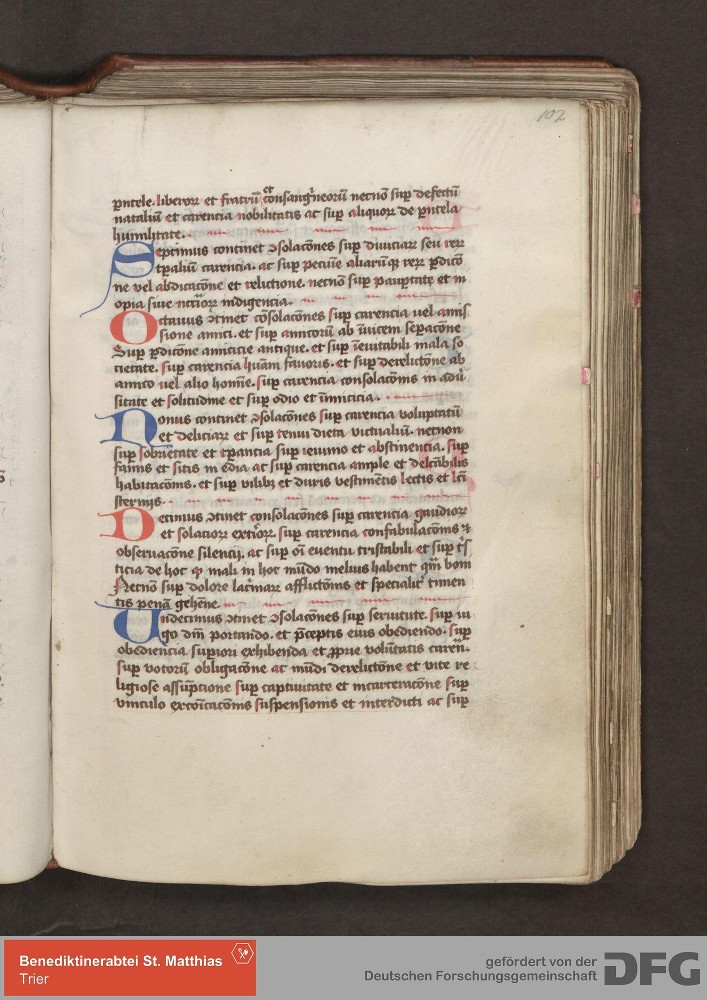 102
et
pntele. liberoꝝ et fratrū consangͥneorū necnō suꝑ defectū
nataliū et carencia nobilitatis ac suꝑ aliquoꝝ de pntela
humilitate.
Septimus continet ꝯsolacōnes suꝑ diuiciaꝝ seu reꝝ
tꝑaliū carencia. ac suꝑ pecunie aliarūqꝫ reꝝ ꝑdicō
ne vel abdicacōne et relictione. necnō suꝑ pauꝑtate et in
opia siue nccͥioꝝ indigencia.
Octauus ꝯtinet cōsolacōnes suꝑ carencia vel amis
sione amici. et suꝑ amicorū ab īuicem seꝑacōne
Suꝑ ꝑdicōne amicicie antique. et suꝑ īeuitabili mala so
cietate. suꝑ carencia huāni fauoris. et suꝑ derelictōne ab
amico vel alio homīe. suꝑ carencia consolacōnis in adū
sitate et solitudine et suꝑ odio et īimicicia.
Nonus continet ꝯsolacōnes suꝑ carencia voluptatū
et deliciaꝝ et suꝑ tenui dieta victualiū. necnon
suꝑ sobrietate et tꝑancia suꝑ ieiunio et abstinencia. suꝑ
famis et sitis in edia ac suꝑ carencia ample et delcābilis
habitacōnis. et suꝑ vilibꝫ et duris vestimētis lectis et lcī
sternijs.
Decimus ꝯtinet consolacōnes suꝑ carencia gaudioꝝ
et solacioꝝ extͥioꝝ. suꝑ carencia confabulacōnis ⁊
obseruacōne silencij. ac suꝑ oī euentu tristabili et suꝑ tͥs
ticia de hoc ꝙ mali in hoc mūdo melius habent qͣm boni
Necnō suꝑ dolore lacͥmaꝝ afflictōnis et specialitͥ timen
tis penā gehēne.
Undecimus ꝯtinet ꝯsolacōnes suꝑ seruitute. suꝑ iu
go dn̄i portando. et p̄ceptis eius obediendo. suꝑ
obediencia suꝑiori exhibenda et ꝓprie volūtatis carēn.
suꝑ votorū obligacōne ac mūdi derelictōne et vite re
ligiose assūpcione suꝑ captiuitate et incarceracōne suꝑ
vinculo excoīcacōnis suspensionis et interdicti ac suꝑ
Benediktinerabtei St. Matthias
Trier
gefördert von der
Deutschen Forschungsgemeinschaft
DFG